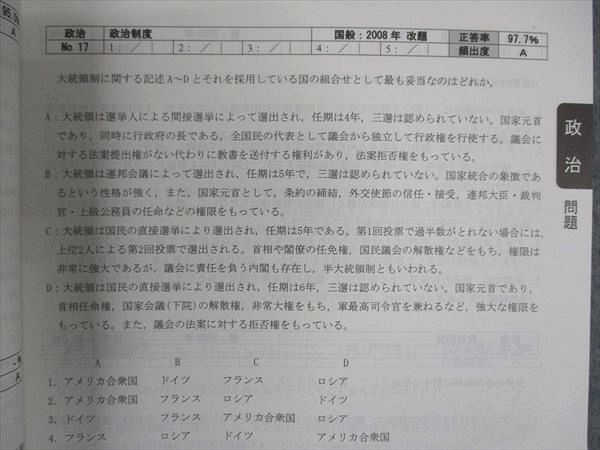 政治
政治制度
国般：2008年 改題
正答率
97.7%
No.17
1: ／
2: ／
3: ／
4: ／
5: ／
頻出度
A
大統領制に関する記述A～Dとそれを採用している国の組合せとして最も妥当なのはどれか。
A：大統領は選挙人による間接選挙によって選出され，任期は4年，三選は認められていない。国家元首
であり，同時に行政府の長である。全国民の代表として議会から独立して行政権を行使する。議会に
対する法案提出権がない代わりに教書を送付する権利があり，法案拒否権をもっている。
B：大統領は連邦会議によって選出され，任期は5年で，三選は認められていない。国家統合の象徴であ
るという性格が強く，また，国家元首として，条約の締結，外交使節の信任・接受，連邦大臣・裁判
官・上級公務員の任命などの権限をもっている。
C：大統領は国民の直接選挙により選出され，任期は5年である。第1回投票で過半数がとれない場合には，
上位2人による第2回投票で選出される。首相や閣僚の任免権，国民議会の解散権などをもち，権限は
非常に強大であるが，議会に責任を負う内閣も存在し，半大統領制ともいわれる。
D：大統領は国民の直接選挙により選出され，任期は6年，三選は認められていない。国家元首であり，
首相任命権，国家会議(下院)の解散権，非常大権をもち，軍最高司令官を兼ねるなど，強大な権限を
もっている。また，議会の法案に対する拒否権をもっている。
A B C D
1．アメリカ合衆国 ドイツ フランス ロシア
2．アメリカ合衆国 フランス ロシア ドイツ
3．ドイツ フランス アメリカ合衆国 ロシア
4．フランス ロシア ドイツ アメリカ合衆国
政治
問題
95.9%
A
A